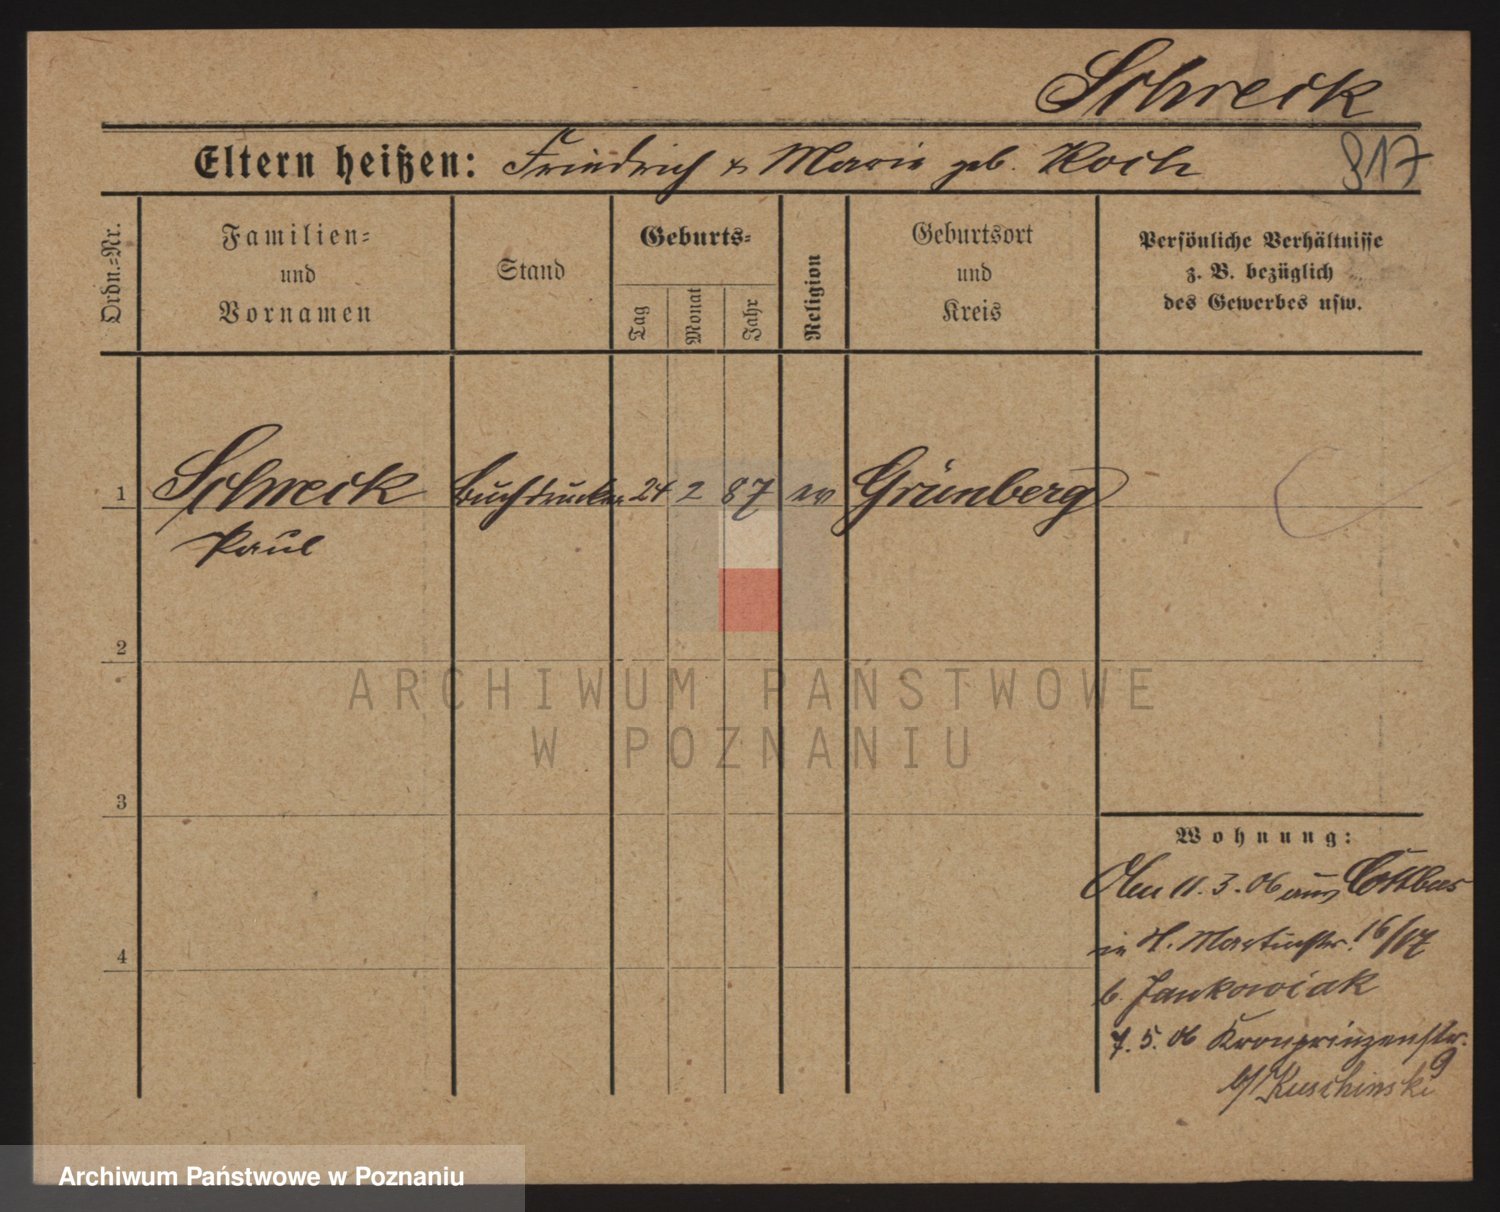 Schreck
Eltern heißen: Friedrich & Marie geb. Koch 817
Ordn.-Nr.
Familien-
und
Vornamen
Stand
Geburts-
Tag
Monat
Jahr
Religion
Geburtsort
und
Kreis
Persönliche Verhältnisse
z. B. bezüglich
des Gewerbes usw.
1 Schreck Buchdrucker 24 2 87 ev Grünberg
Paul
2
3
4
Wohnung:
11.3.06 aus Cottbus
in St. Martinstr. 16/17
b. Jankowiak
7.5.06 Kronprinzenstr.
9
b/ Kuschinski
ARCHIWUM PAŃSTWOWE
W POZNANIU
Archiwum Państwowe w Poznaniu